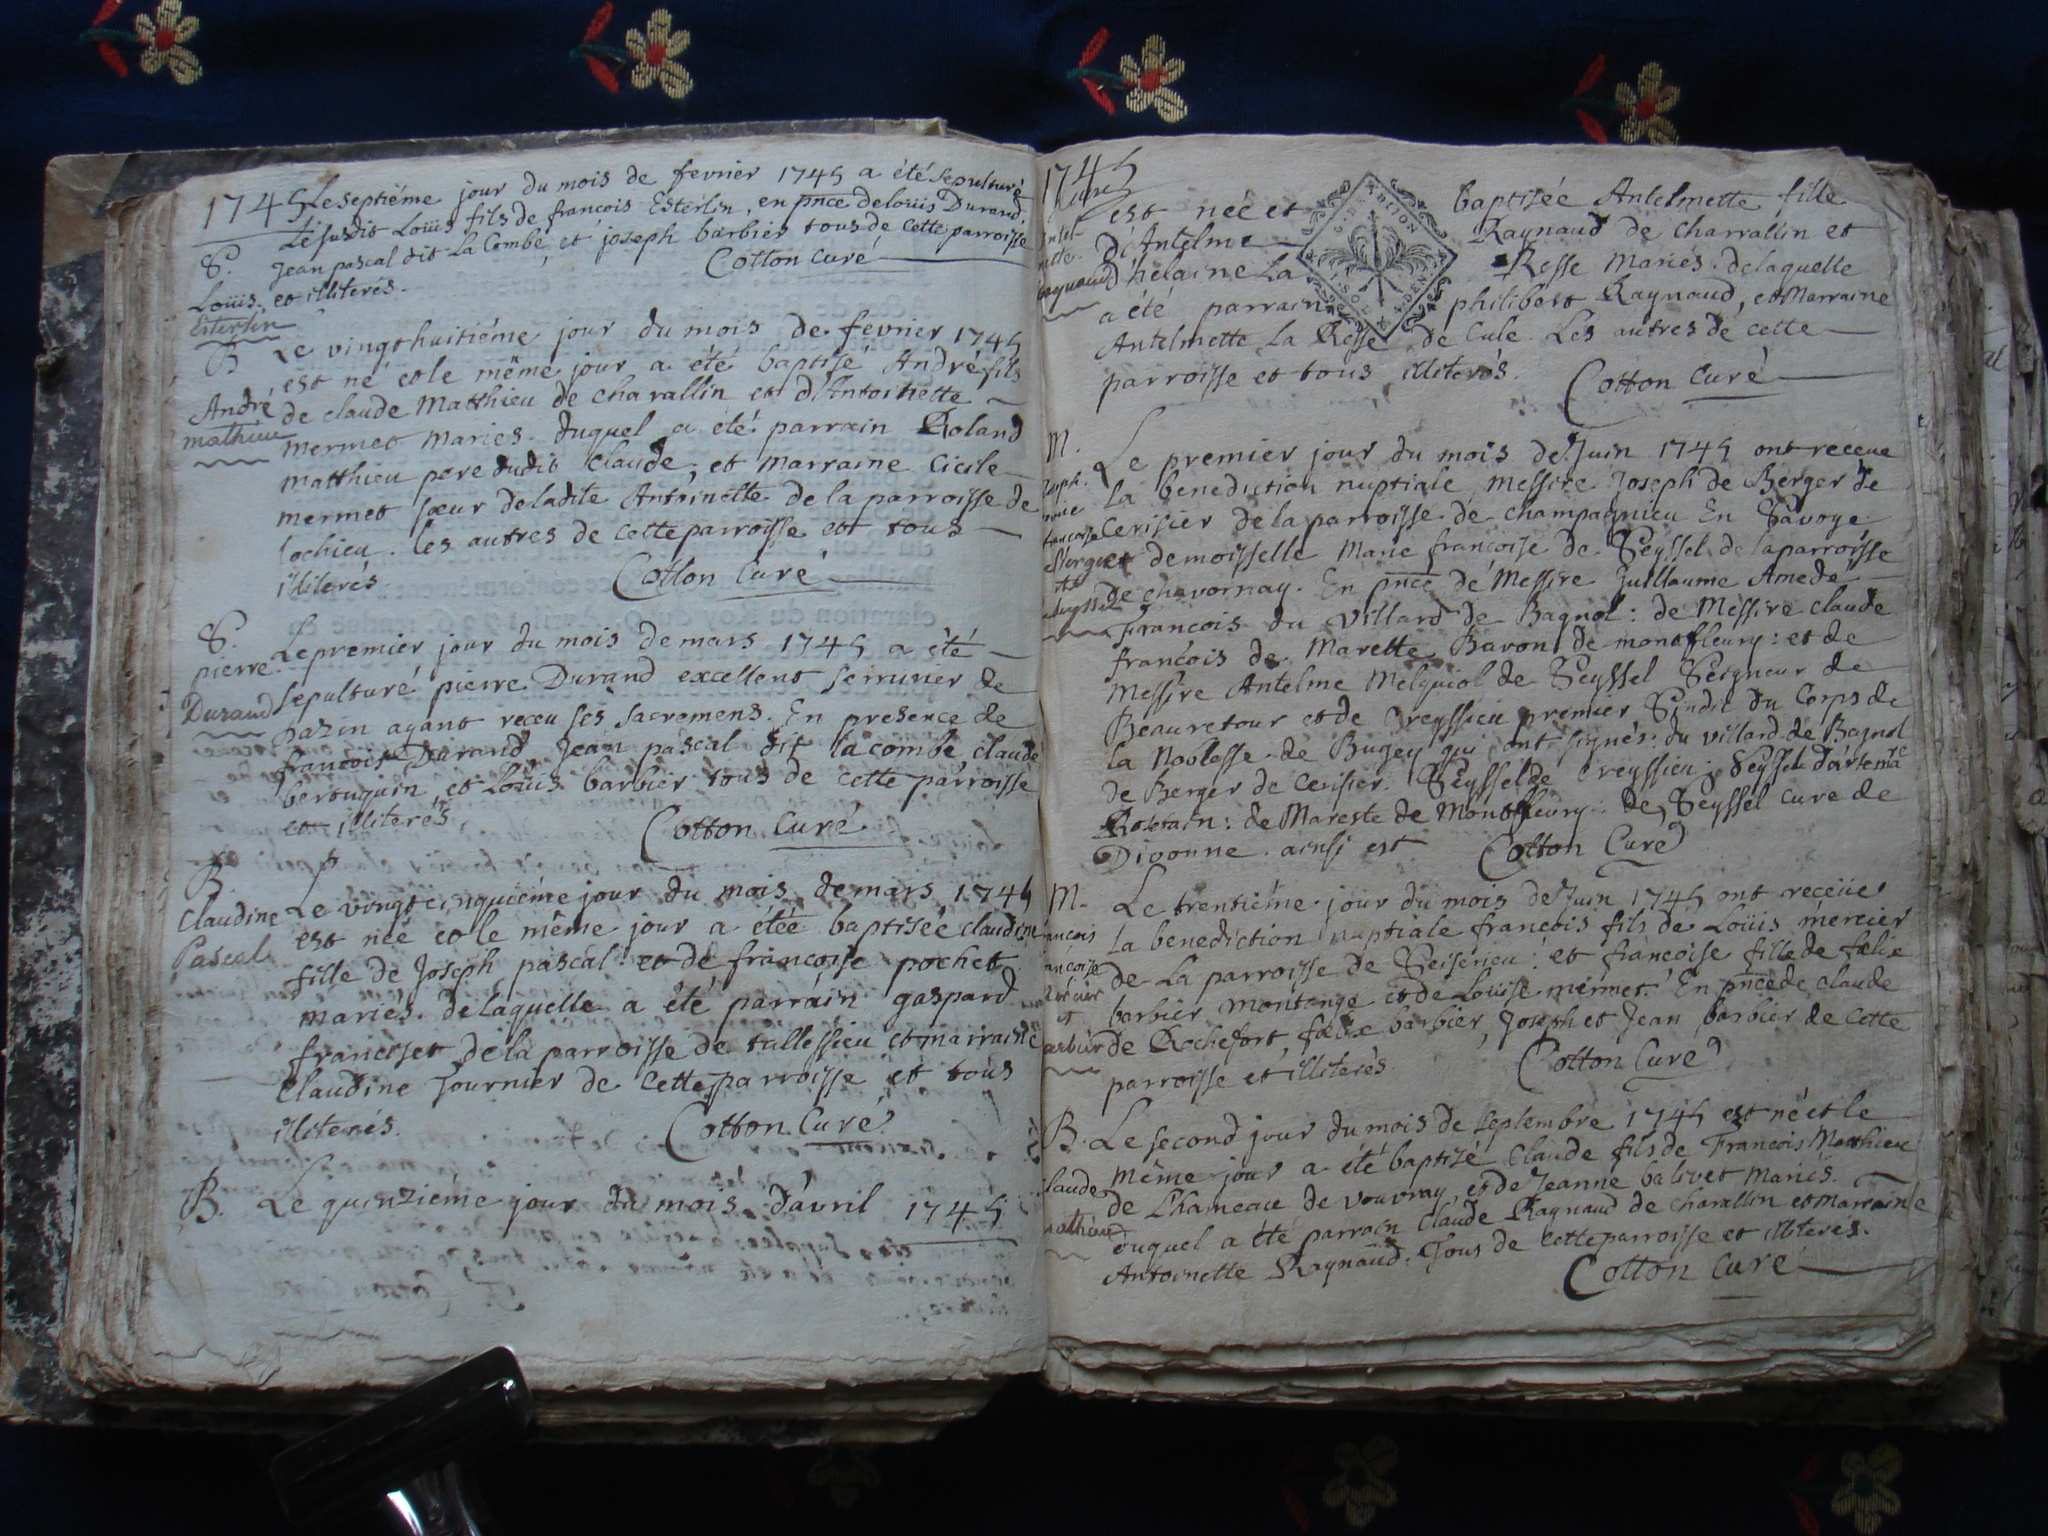 1745 Le septiéme jour du mois de fevrier 1745 a été sepulturé
S. Lesusdit Loüis fils de francois Esterlin, en pnce de loüis Durand.
jean pascal dit La Combe, et joseph barbier tous de cette parroisse
Loüis et illiterés. Cotton curé
Esterlin
B Le vingt huitiéme jour du mois de fevrier 1745
est né et le même jour a été baptisé André fils
André de claude Matthieu de charallin et d'Antoinette
mathieu mermet mariés. duquel a été parrain Roland
matthieu pere dudit claude, et marraine Cicile
mermet sœur deladite Antoinette de la parroisse de
lochieu. les autres de cette parroisse et tous
illiterés. Cotton Curé
S. Le premier jour du mois de mars 1745 a été
pierre sepulturé pierre Durand excellent serrurier de
Durand pazin ayant receu ses sacremens. En presence de
francois Durand, Jean pascal dit la combe, claude
berouquin, et Loüis barbier tous de cette parroisse
et illiterés. Cotton Curé
B.
Claudine Le vingt cinquiéme jour du mois de mars 1745
est née et le même jour a étée baptisée claudine
Pascal fille de Joseph pascal et de francoise pochet
mariés. delaquelle a été parrain gaspard
francset de la parroisse de tallessieu et marraine
Claudine fournier de cette parroisse et tous
illiterés. Cotton Curé
B. Le quinziéme jour du mois d'avril 1745
1745
est née et baptisée Antelmette fille
d'Antelme Raynaud de charrallin et
d'helaine La Resse mariés. delaquelle
a été parrain philibert Raynaud, et Marraine
Antelmette La Resse de Cule. Les autres de cette
parroisse et tous illiterés. Cotton Curé
M. Le premier jour du mois de Juin 1745 ont receue
la benediction nuptiale, Messire Joseph de Berger de
Cerisier de la parroisse de champagnieu En Savoye
et demoisselle Marie francoise de Seyssel de la parroisse
de chavornay. En pnce de Messire Guillaume Amede
francois du Villard de Bagnol: de Messire claude
francois de Marette Baron de montfleury: et de
Messire Antelme Melquiol de Seyssel Seigneur de
Beauretour et de Creyssieu premier Sindic du Corps de
la Noblesse de Bugey qui ont signés: du villard de Bagnol
de Berger de Cerisier. Seyssel de Creyssieu: Seyssel d'artemare
de Mareste de Montfleury: de Seyssel cure de
Divonne. ainsi est Cotton Curé
M. Le trentiéme jour du mois de Juin 1745 ont receüe
la benediction nuptiale francois fils de Loüis mercier
de La parroisse de Seiserieu: et francoise fille de felix
barbier montange et de Loüise mermet. En pnce de claude
de Rochefort, felix barbier, Joseph et Jean barbier de Cette
parroisse et illiterés. Cotton Curé
B. Le second jour du mois de septembre 1745 est né et le
même jour a été baptisé Claude fils de Francois Matthieu
de l'hameau de vouvray, et de Jeanne balivet Mariés.
duquel a été parrain Claude Raynaud de charallin et Marraine
Antoinette Raynaud. Tous de cette parroisse et illiteres.
Cotton Curé